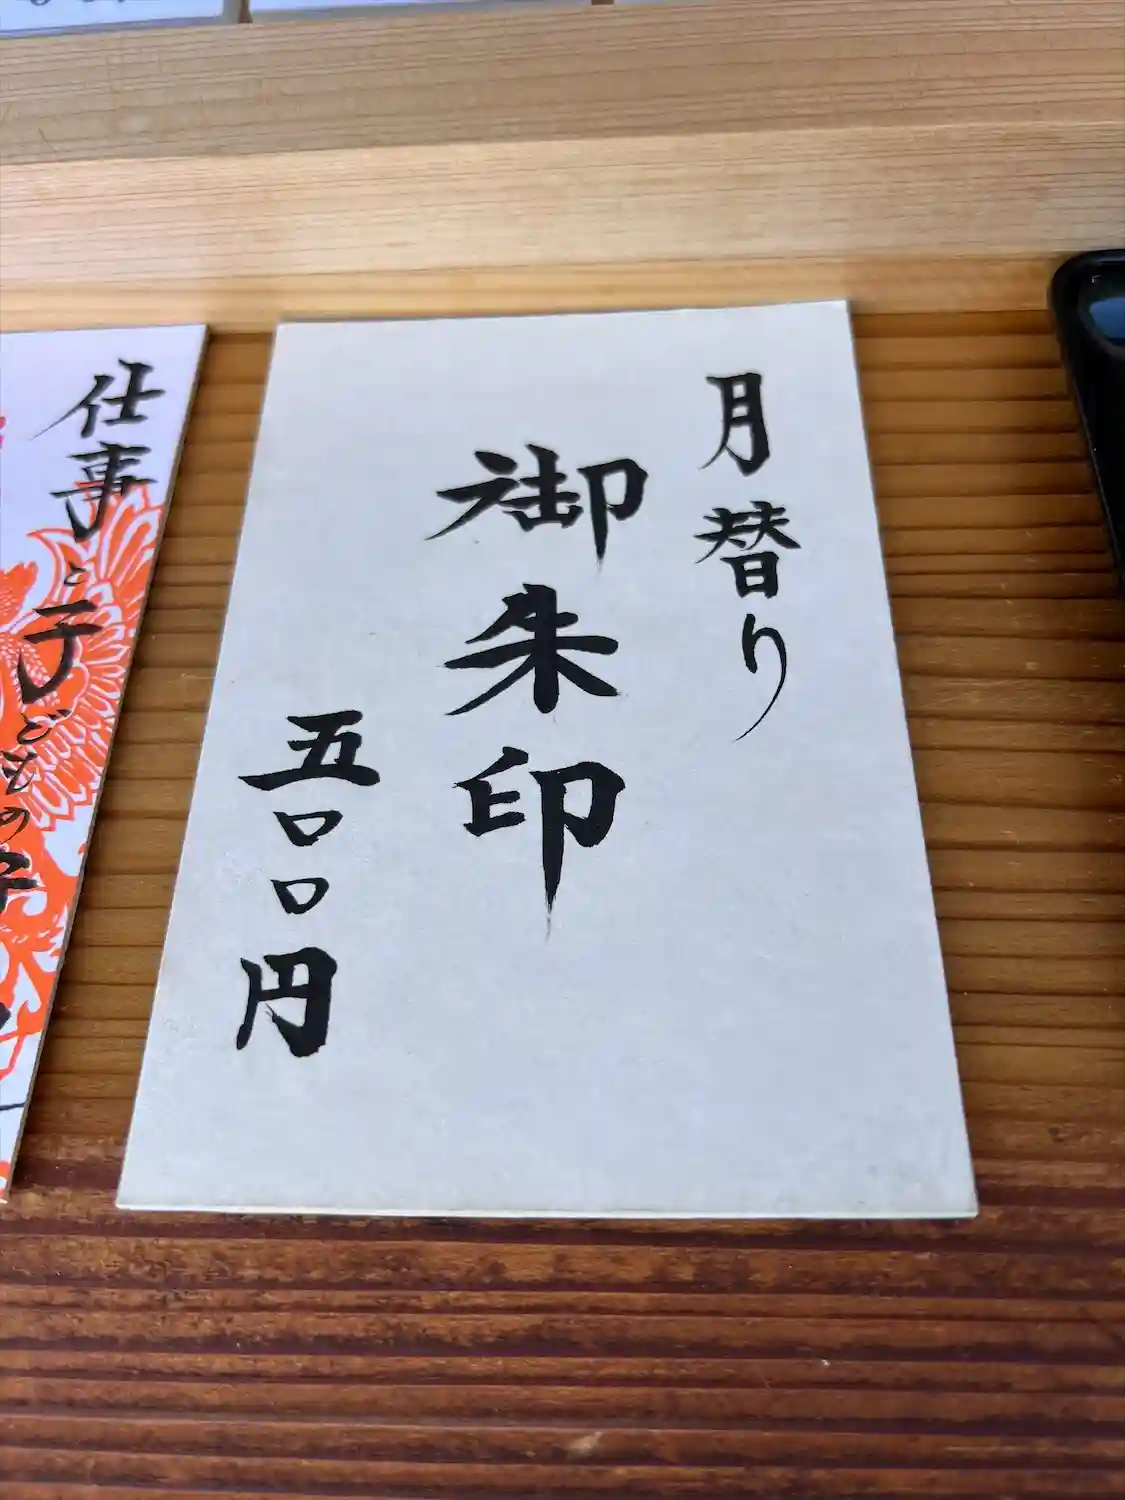 月替り
御朱印
五〇〇円
仕事と子どもの守